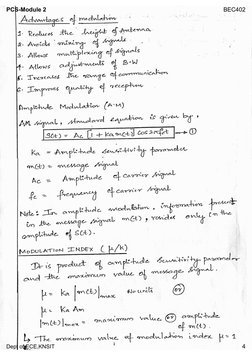 PCS-Module 2 BEC402
Advantages of modulation
1. Reduces the height of Antenna
2. Avoids mixing of signals
3. Allows multiplexing of signals
4. Allows adjustments of B.W
5. Increases the range of communication
6. Improves quality of reception
Amplitude Modulation (A.M)
AM signal, standard equation is given by,
S(t) = Ac [1 + Ka m(t)] cos 2πfct → ①
Ka = Amplitude sensitivity parameter
m(t) = message signal
Ac = Amplitude of carrier signal
fc = frequency of carrier signal
Note: In amplitude modulation, information present
in the message signal m(t), resides only in the
amplitude of S(t).
MODULATION INDEX (μ/K)
It is product of amplitude sensitivity parameter
and the maximum value of message signal.
μ = Ka |m(t)|max No units OR
μ = Ka Am
|m(t)|max = maximum value OR amplitude
of m(t).
↳ The maximum value of modulation index = 1
Dept of ECE,KNSIT 4